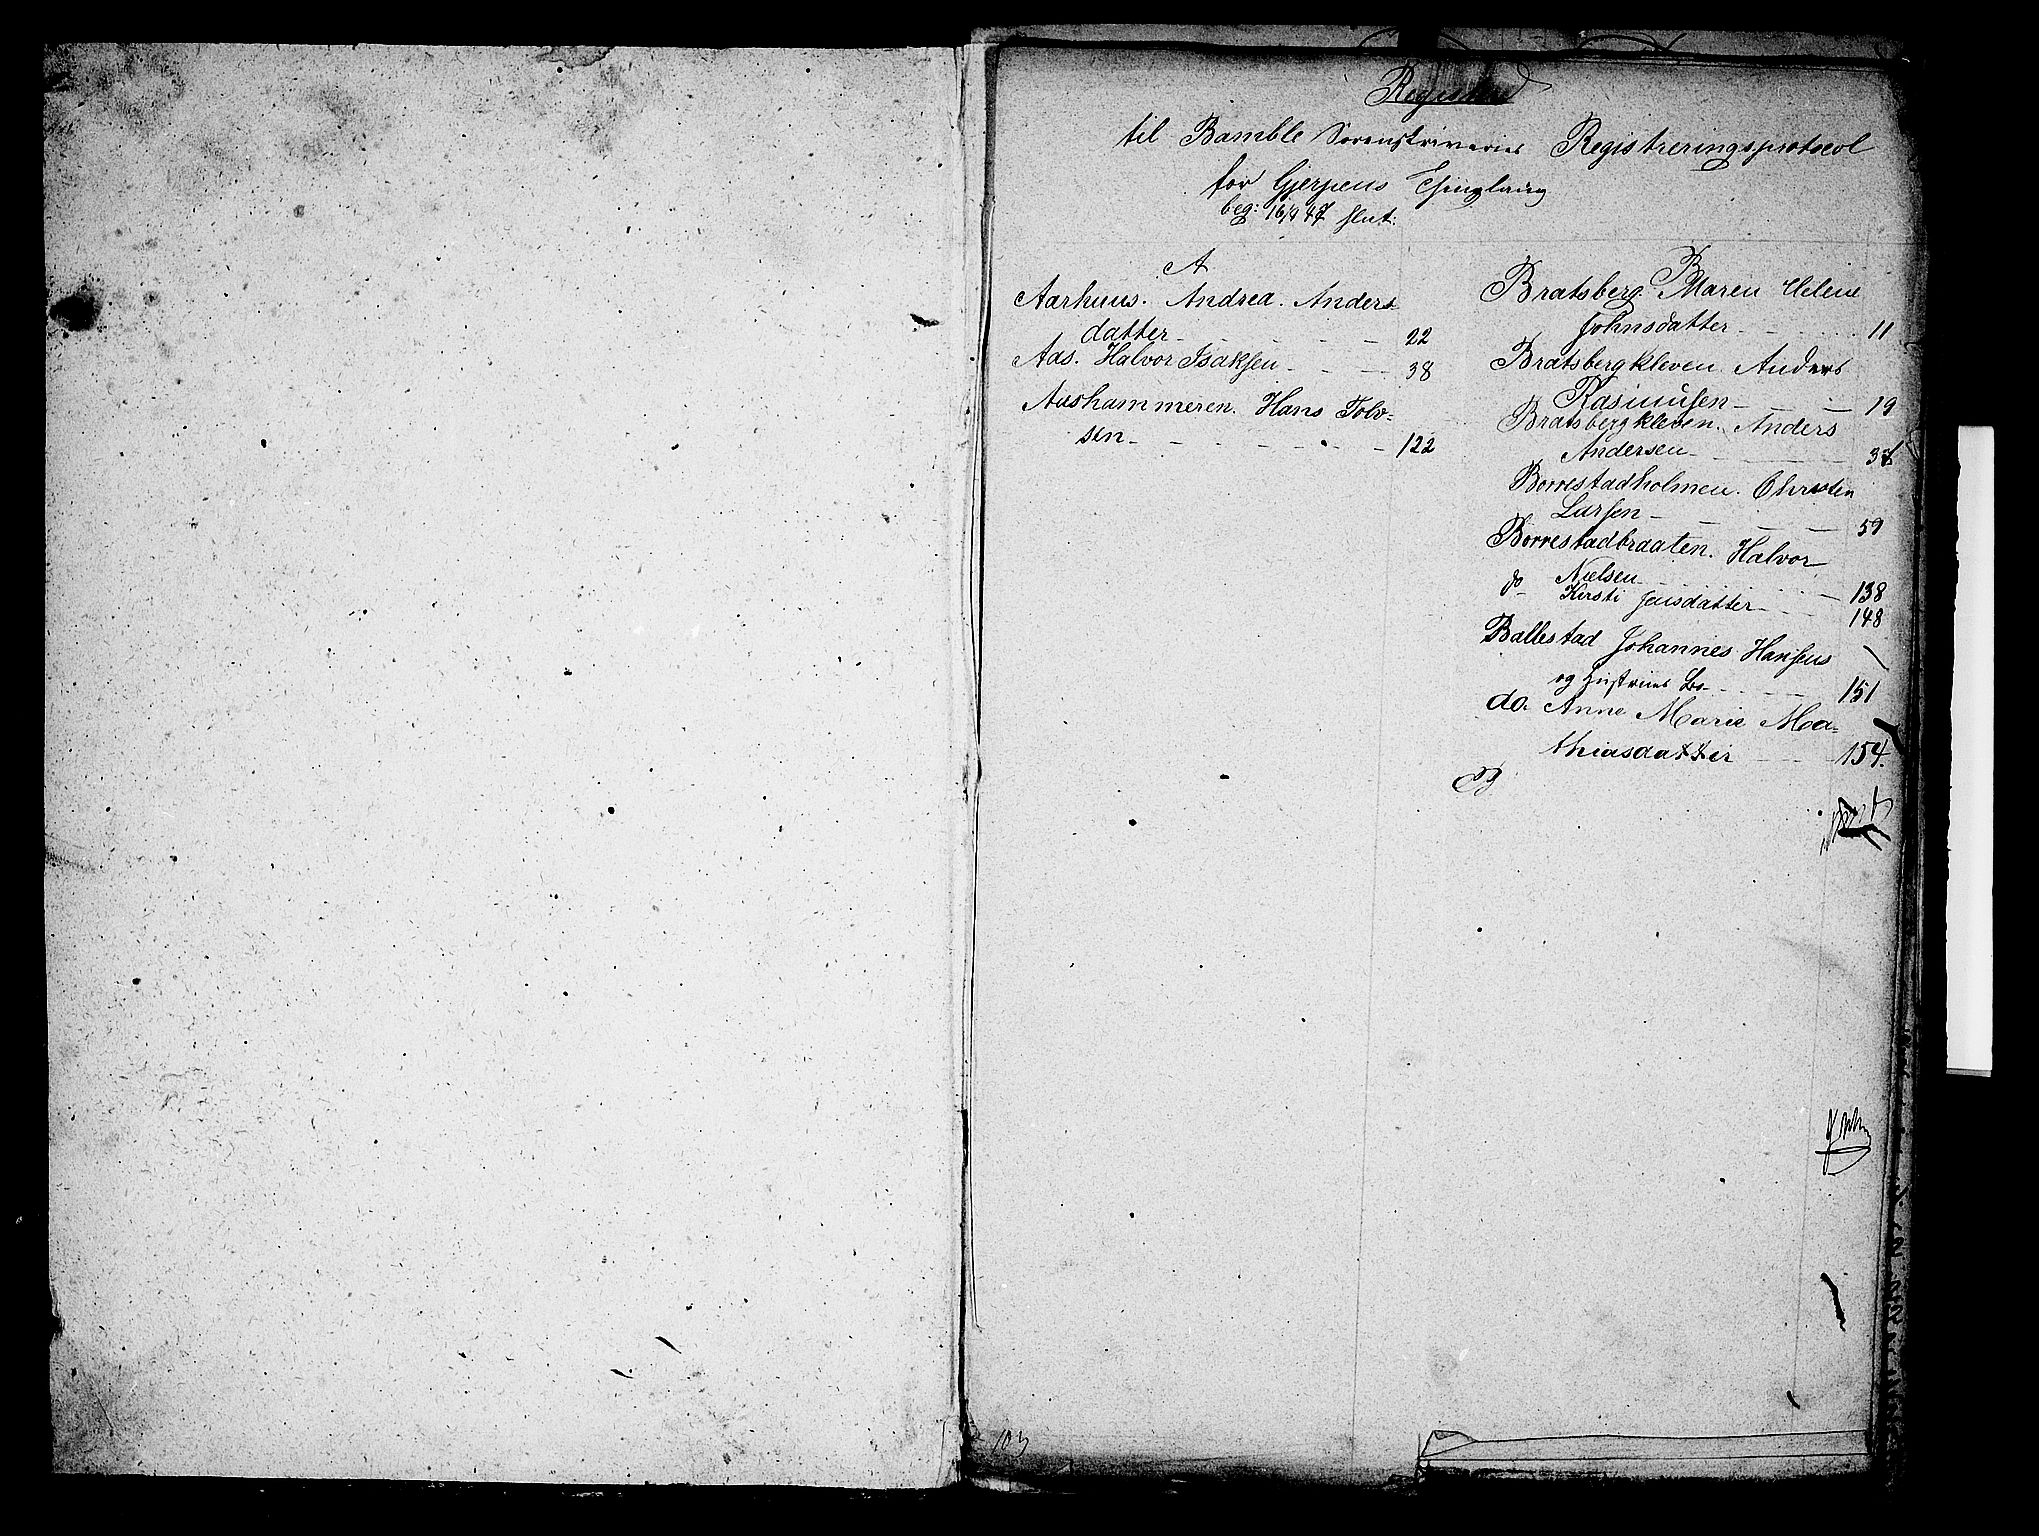 Register
til Bamble Sorenskriveries Registreringsprotocol
for Gjerpens Thinglaug
beg: 16/9 47 slut:
A
Aarhuus. Andrea. Anders-
datter - - - - - - 22
Aas. Halvor Isaksen - - - - 38
Aashammeren. Hans Tolv-
sen - - - - - - - 122
B
Bratsberg. Maren Helene
Johnsdatter - - - 11
Bratsbergkleven Anders
Rasmusen - - - 19
Bratsbergkleven. Anders
Andersen - - - -
Borrestadholmen. Christen
Larsen - - - - 59
Borrestadbraaten. Halvor
Nielsen - - - - 138
do Kirsti Jensdatter - - - 148
Ballestad Johannes Hansens
og Hustrues Bo - - - - 151
do. Anne Marie Ma-
thiasdatter - - - 154.
103